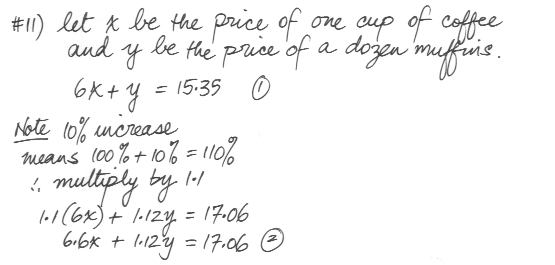 #11) let x be the price of one cup of coffee
and y be the price of a dozen muffins.
6x + y = 15.35 ①
Note 10% increase
means 100% + 10% = 110%
∴ multiply by 1.1
1.1(6x) + 1.12y = 17.06
6.6x + 1.12y = 17.06 ②